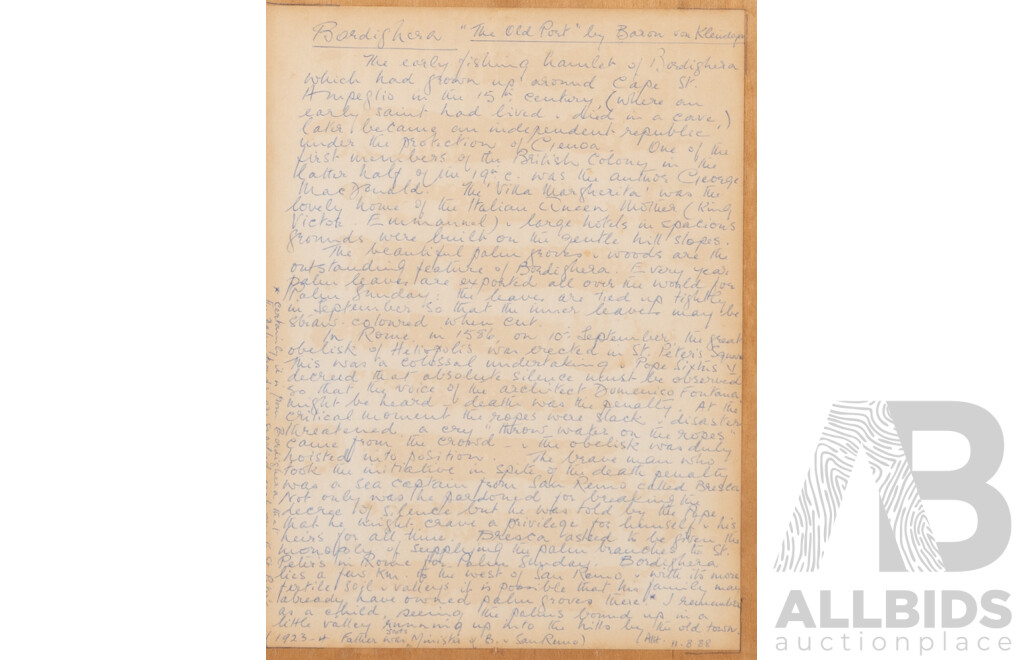 Bordighera "The Old Port" by Baron von Kleudgen
The early fishing hamlet of Bordighera
which had grown up around Cape St.
Ampeglio in the 15th century, (where an
early saint had lived & died in a cave,)
later became an independent republic
under the protection of Genoa. One of the
first members of the British Colony in the
latter half of the 19th c. was the author George
MacDonald. The 'Villa Margherita' was the
lovely home of the Italian Queen Mother (King
Victor Emmanuel) & large hotels in spacious
grounds were built on the gentle hill slopes.
The beautiful palm groves & woods are the
outstanding feature of Bordighera. Every year
palm leaves are exported all over the world for
Palm Sunday: the leaves are tied up tightly
in September so that the inner leaves may be
straw coloured when cut.
In Rome, in 1586, on 10th September the great
obelisk of Heliopolis was erected in St. Peter's Square
This was a colossal undertaking & Pope Sixtus V
decreed that absolute silence must be observed
so that the voice of the architect Domenico Fontana
might be heard & death was the penalty. At the
critical moment the ropes were slack & disaster
threatened. a cry "throw water on the ropes"
came from the crowd - & the obelisk was duly
hoisted into position. The brave man who
took the initiative in spite of the death penalty
was a sea captain from San Remo called Bresca
Not only was he pardoned for breaking the
decree of silence but he was told by the Pope
that he might crave a privilege for himself & his
heirs for all time. Bresca asked to be given the
monopoly of supplying the palm branches to St.
Peters in Rome for Palm Sunday. Bordighera
lies a few km. to the west of San Remo & with its more
fertile soil & valleys it is possible that the family may
already have owned palm groves there.* I remember
as a child seeing the palms bound up in a
little valley running up into the hills by the old town.
(1923 - & Father was Minister of B. & San Remo) 11.8.88
ALLBIDS
auctionplace